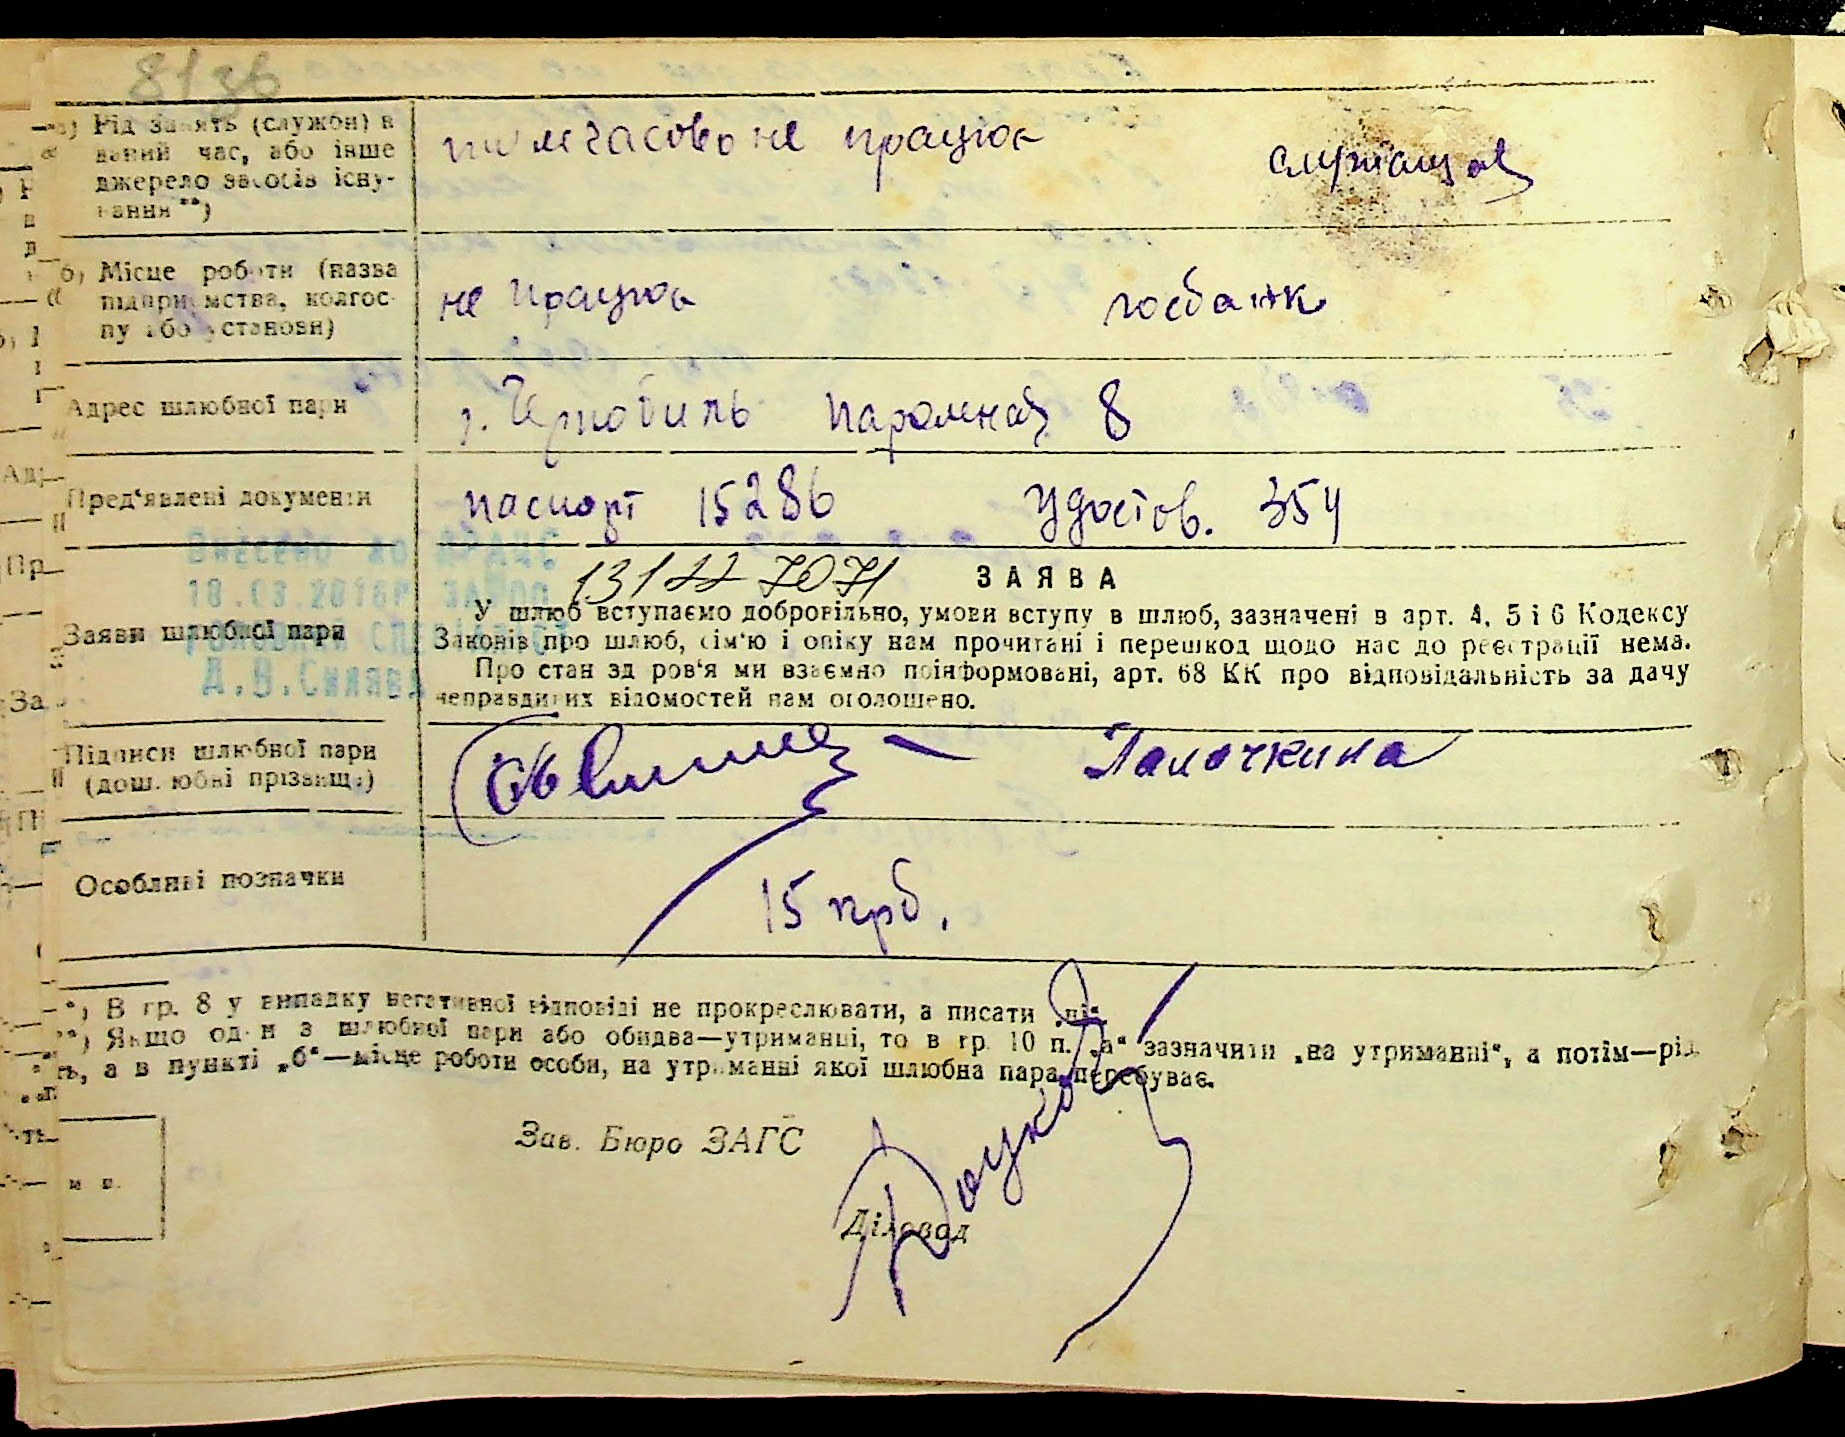 81зв
а) Рід занять (служби) в
даний час, або інше
джерело засобів існу-
вання **)
тимчасово не працюю
служащая
б) Місце роботи (назва
підприємства, колгос-
пу або установи)
не працюю
госбанк
Адрес шлюбної пари
г. Чернобиль Паромная 8
Пред'явлені документи
паспорт 15286
Удостов. 354
Внесено до ДРАЦС
18.03.2016р
Д.В.
131227071
ЗАЯВА
Заяви шлюбної пари
У шлюб вступаємо добровільно, умови вступу в шлюб, зазначені в арт. 4, 5 і 6 Кодексу
Законів про шлюб, сім'ю і опіку нам прочитані і перешкод щодо нас до реєстрації нема.
Про стан здоров'я ми взаємно поінформовані, арт. 68 КК про відповідальність за дачу
неправдивих відомостей нам оголошено.
Підписи шлюбної пари
(дошлюбні прізвища)
Палочкина
Особливі позначки
15 крб.
*) В гр. 8 у випадку негативної відповіді не прокреслювати, а писати „ні“.
**) Якщо один з шлюбної пари або обидва—утриманці, то в гр. 10 п. „а“ зазначити „на утриманні“, а потім—рід
занять, а в пункті „б“—місце роботи особи, на утриманні якої шлюбна пара перебуває.
Зав. Бюро ЗАГС
м. п.
Діловод